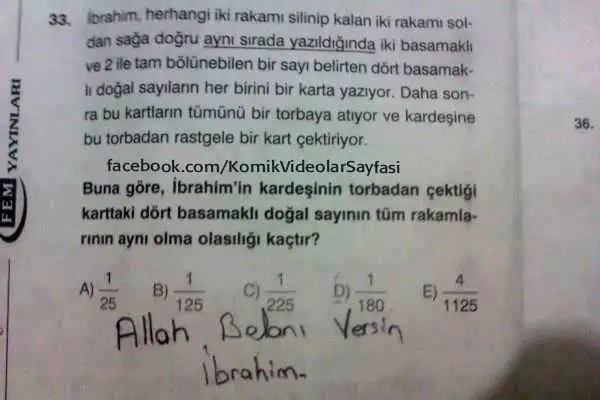 33. İbrahim, herhangi iki rakamı silinip kalan iki rakamı sol-
dan sağa doğru aynı sırada yazıldığında iki basamaklı
ve 2 ile tam bölünebilen bir sayı belirten dört basamak-
lı doğal sayıların her birini bir karta yazıyor. Daha son-
ra bu kartların tümünü bir torbaya atıyor ve kardeşine
bu torbadan rastgele bir kart çektiriyor.
facebook.com/KomikVideolarSayfasi
Buna göre, İbrahim'in kardeşinin torbadan çektiği
karttaki dört basamaklı doğal sayının tüm rakamla-
rının aynı olma olasılığı kaçtır?
A) 1/25 B) 1/125 C) 1/225 D) 1/180 E) 4/1125
Allah Belanı Versin
İbrahim.
FEM YAYINLARI
36.